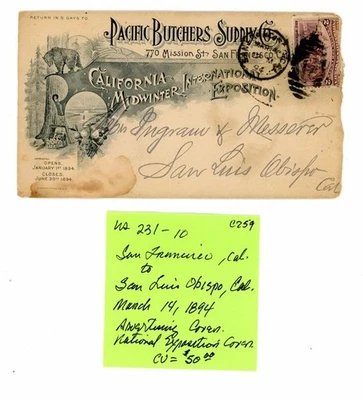 RETURN IN 5 DAYS TO
PACIFIC BUTCHERS SUPPLY CO.
770 MISSION ST. SAN F
CALIFORNIA
MIDWINTER INTERNATIONAL
EXPOSITION.
OPENS
JANUARY 1ST 1894.
CLOSES
JUNE 30TH 1894.
Ingram & Messerer
San Luis Obispo
Cal
US 231-10 C259
San Francisco, Cal.
to
San Luis Obispo, Cal.
March 14, 1894
Advertising Cover.
National Exposition Cover
CV = $50.00